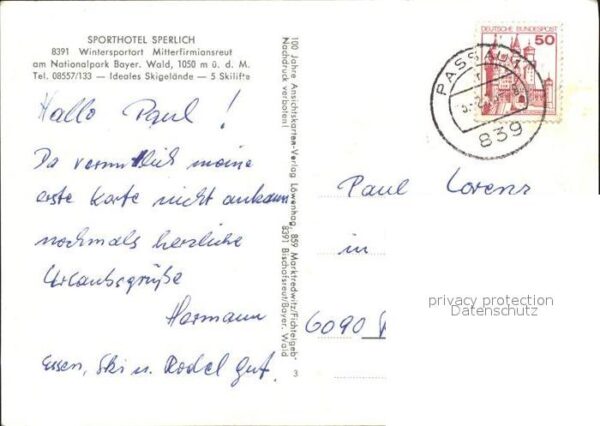 SPORTHOTEL SPERLICH
8391 Wintersportort Mitterfirmiansreut
am Nationalpark Bayer. Wald, 1050 m ü. d. M.
Tel. 08557/133 — Ideales Skigelände — 5 Skilifte
Hallo Paul!
Da vermutlich meine
erste Karte nicht ankam
nochmals herzliche
Urlaubsgrüße
Hermann
Essen, Ski u. Rodel gut.
100 Jahre Ansichtskarten-Verlag Löwenhag, 859 Marktredwitz/Fichtelgeb.
Nachdruck verboten! 8391 Bischofsreut/Bayer. Wald
3
DEUTSCHE BUNDESPOST
50
PASSAU 1
839
Paul Lorenz
in
6090
privacy protection
Datenschutz